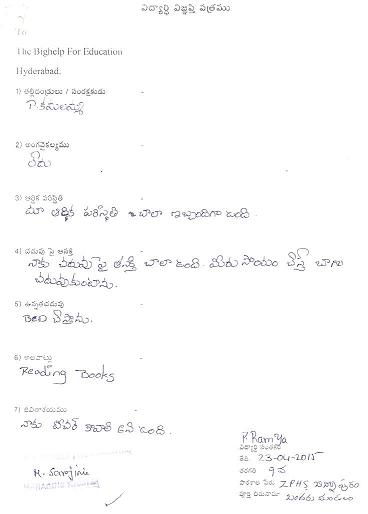 విద్యార్థి విజ్ఞప్తి పత్రము
To
The Bighelp For Education
Hyderabad.
1) తల్లిదండ్రులు / సంరక్షకుడు -
P.కమలమ్మ
2) అంగవైకల్యము -
లేదు
3) ఆర్థిక పరిస్థితి -
మా ఆర్థిక పరిస్థితి చాలా ఇబ్బందిగా ఉంది.
4) చదువు పై ఆసక్తి -
నాకు చదువు పై ఆసక్తి చాలా ఉంది. మీరు సాయం చేస్తే బాగా
చదువుకుంటాను.
5) ఉన్నతచదువు -
BED చేస్తాను.
6) అలవాట్లు -
Reading Books
7) జీవితాశయము -
నాకు టీచర్ కావాలి అని ఉంది.
P. Ramya
విద్యార్థి సంతకం
తేది 23-04-2015
తరగతి 9వ
పాఠశాల పేరు ZPHS
పూర్తి చిరునామా బందరు మండలం
M. Sarojini